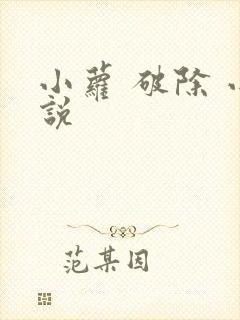 小蘿 破除
說
范某因